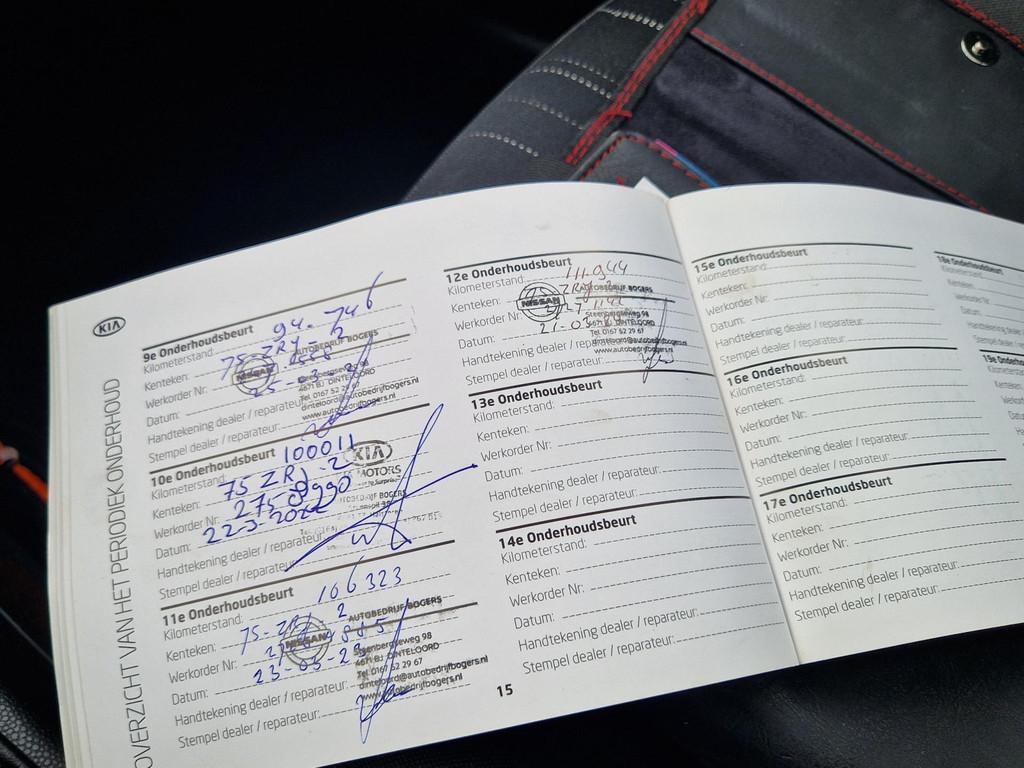 KIA
OVERZICHT VAN HET PERIODIEK ONDERHOUD
9e Onderhoudsbeurt
Kilometerstand: 94.746
Kenteken: 75-ZRJ-2
Werkorder Nr:
Datum: 25-03
Handtekening dealer / reparateur:
Stempel dealer / reparateur:
NISSAN
AUTOBEDRIJF BOGERS
4671 BJ DINTELOORD
Tel. 0167 52 29 67
dinteloord@autobedrijfbogers.nl
www.autobedrijfbogers.nl
10e Onderhoudsbeurt
Kilometerstand: 100011
Kenteken: 75 ZRJ-2
Werkorder Nr:
Datum: 22-3-2022
Handtekening dealer / reparateur:
Stempel dealer / reparateur:
KIA
MOTORS
BOGERS
11e Onderhoudsbeurt
Kilometerstand: 106323
Kenteken: 75-ZRJ 2
Werkorder Nr:
Datum: 23-03-23
Handtekening dealer / reparateur:
Stempel dealer / reparateur:
NISSAN
AUTOBEDRIJF BOGERS
Steenbergseweg 98
4671 BJ DINTELOORD
Tel. 0167 52 29 67
dinteloord@autobedrijfbogers.nl
www.autobedrijfbogers.nl
12e Onderhoudsbeurt
Kilometerstand: 111944
Kenteken:
Werkorder Nr:
Datum: 21-03
Handtekening dealer / reparateur:
Stempel dealer / reparateur:
NISSAN
AUTOBEDRIJF BOGERS
Steenbergseweg 98
4671 BJ DINTELOORD
Tel. 0167 52 29 67
dinteloord@autobedrijfbogers.nl
www.autobedrijfbogers.nl
13e Onderhoudsbeurt
Kilometerstand:
Kenteken:
Werkorder Nr:
Datum:
Handtekening dealer / reparateur:
Stempel dealer / reparateur:
14e Onderhoudsbeurt
Kilometerstand:
Kenteken:
Werkorder Nr:
Datum:
Handtekening dealer / reparateur:
Stempel dealer / reparateur:
15
15e Onderhoudsbeurt
Kilometerstand:
Kenteken:
Werkorder Nr:
Datum:
Handtekening dealer / reparateur:
Stempel dealer / reparateur:
16e Onderhoudsbeurt
Kilometerstand:
Kenteken:
Werkorder Nr:
Datum:
Handtekening dealer / reparateur:
Stempel dealer / reparateur:
17e Onderhoudsbeurt
Kilometerstand:
Kenteken:
Werkorder Nr:
Datum:
Handtekening dealer / reparateur:
Stempel dealer / reparateur:
18e Onderhoudsbeurt
Kilometerstand:
Kenteken:
Werkorder Nr:
Datum: